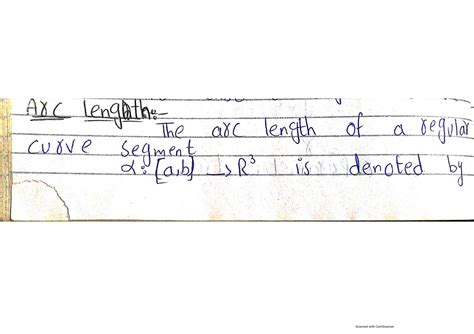 Arc length:-
The arc length of a regular
curve segment
α: [a,b] → R³ is denoted by
Scanned with CamScanner